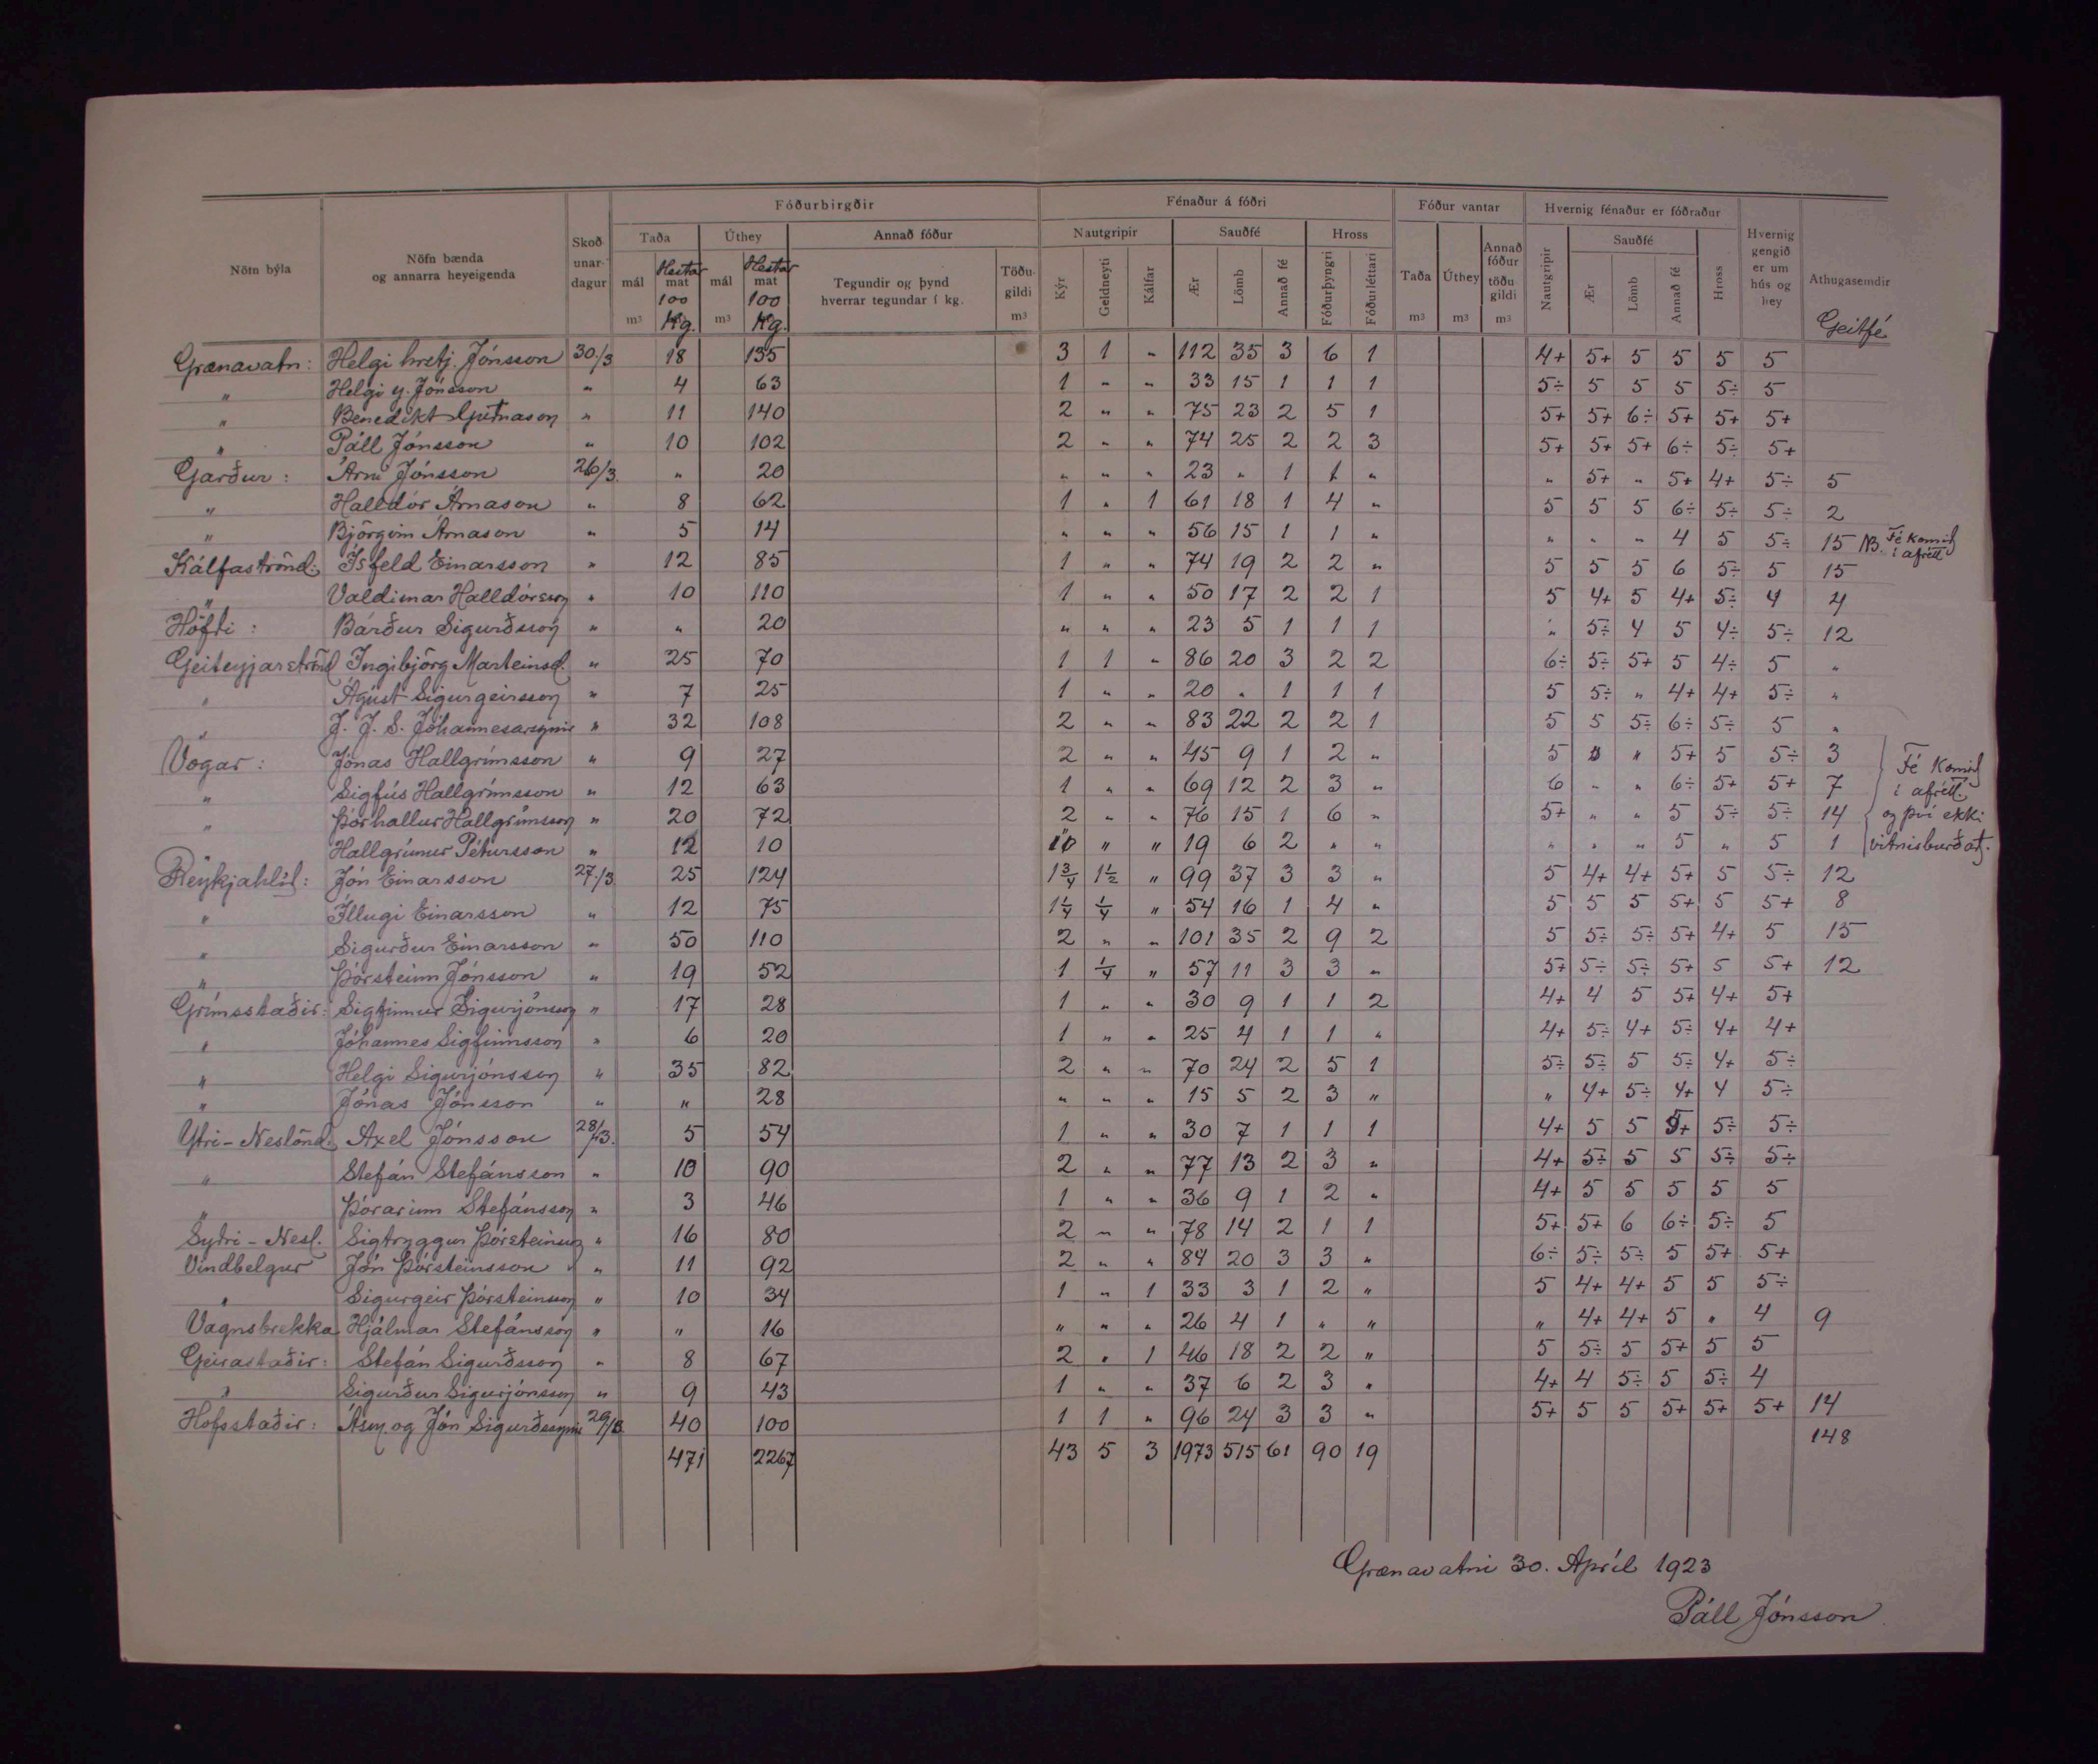 Fóðurbirgðir Fénaður á fóðri Fóður vantar Hvernig fénaður er fóðraður
Nöfn býla Nöfn bænda og annarra heyeigenda Skoðunardagur Taða Úthey Annað fóður Nautgripir Sauðfé Hross Taða Úthey Annað fóður töðugildi Nautgripir Sauðfé Hross Hvernig gengið er um hús og hey Athugasemdir
mál Hestar mat mál Hestar mat Tegundir og þynd hverrar tegundar í kg. Töðugildi Kýr Geldneyti Kálfar Ær Lömb Annað fé Fóðurþyngri Fóðurléttari Ær Lömb Annað fé
m³ 100 Kg. m³ 100 Kg. m³ m³ m³ m³ Geitfé
Grænavatn: Helgi hretj. Jónsson 30./3 18 135 3 1 " 112 35 3 6 1 4+ 5+ 5 5 5 5
" Helgi y. Jónsson " 4 63 1 " " 33 15 1 1 1 5÷ 5 5 5 5÷ 5
" Benedikt Guðnason " 11 140 2 " " 75 23 2 5 1 5+ 5+ 6÷ 5+ 5+ 5+
" Páll Jónsson " 10 102 2 " " 74 25 2 2 3 5+ 5+ 5+ 6÷ 5÷ 5+
Garður: Árni Jónsson 26/3. " 20 " " " 23 " 1 1 " " 5+ " 5+ 4+ 5÷ 5
" Halldór Árnason " 8 62 1 " 1 61 18 1 4 " 5 5 5 6÷ 5÷ 5÷ 2
" Björgvin Árnason " 5 14 " " " 56 15 1 1 " " " " 4 5 5÷ 15 NB. Fé komið í afrétt
Kálfaströnd: Ísfeld Einarsson " 12 85 1 " " 74 19 2 2 " 5 5 5 6 5÷ 5 15
" Valdimar Halldórsson " 10 110 1 " " 50 17 2 2 1 5 4+ 5 4+ 5÷ 4 4
Höfði: Bárður Sigurðsson " " 20 " " " 23 5 1 1 1 " 5÷ 4 5 4÷ 5÷ 12
Geiteyjarströnd Ingibjörg Marteinsd. " 25 70 1 1 " 86 20 3 2 2 6÷ 5÷ 5+ 5 4÷ 5 "
" Ágúst Sigurgeirsson " 7 25 1 " " 20 " 1 1 1 5 5÷ " 4+ 4+ 5÷ "
" J. J. S. Jóhannesarsynir " 32 108 2 " " 83 22 2 2 1 5 5 5÷ 6÷ 5÷ 5 "
Vogar: Jónas Hallgrímsson " 9 27 2 " " 45 9 1 2 " 5 " " 5+ 5 5÷ 3 Fé komið
" Sigfús Hallgrímsson " 12 63 1 " " 69 12 2 3 " 6 " " 6÷ 5+ 5+ 7 í afrétt.
" Þórhallur Hallgrímsson " 20 72 2 " " 76 15 1 6 " 5+ " " 5 5÷ 5÷ 14 og því ekki
" Hallgrímur Pétursson " 12 10 " " " 19 6 2 " " " " " 5 " 5 1 vitnisburðað.
Reykjahlíð: Jón Einarsson 27./3 25 124 1¾ 1½ " 99 37 3 3 " 5 4+ 4+ 5+ 5 5÷ 12
" Illugi Einarsson " 12 75 1¼ ¼ " 54 16 1 4 " 5 5 5 5+ 5 5+ 8
" Sigurður Einarsson " 50 110 2 " " 101 35 2 9 2 5 5÷ 5÷ 5+ 4+ 5 15
" Þórsteinn Jónsson " 19 52 1 ¼ " 57 11 3 3 " 5+ 5÷ 5÷ 5+ 5 5+ 12
Grímsstaðir: Sigfinnur Sigurjónsson " 17 28 1 " " 30 9 1 1 2 4+ 4 5 5+ 4+ 5+
" Jóhannes Sigfinnsson " 6 20 1 " " 25 4 1 1 " 4+ 5÷ 4+ 5÷ 4+ 4+
" Helgi Sigurjónsson " 35 82 2 " " 70 24 2 5 1 5÷ 5÷ 5 5÷ 4+ 5÷
" Jónas Jónsson " " 28 " " " 15 5 2 3 " " 4+ 5÷ 4+ 4 5÷
Ytri-Neslönd. Axel Jónsson 28/3. 5 54 1 " " 30 7 1 1 1 4+ 5 5 5+ 5÷ 5÷
" Stefán Stefánsson " 10 90 2 " " 77 13 2 3 " 4+ 5÷ 5 5 5÷ 5÷
" Þórarinn Stefánsson " 3 46 1 " " 36 9 1 2 " 4+ 5 5 5 5 5
Syðri-Nesl. Sigtryggur Þórsteinsson " 16 80 2 " " 78 14 2 1 1 5+ 5+ 6 6÷ 5÷ 5
Vindbelgur Jón Þórsteinsson " 11 92 2 " " 84 20 3 3 " 6÷ 5÷ 5÷ 5 5+ 5+
" Sigurgeir Þórsteinsson " 10 34 1 " 1 33 3 1 2 " 5 4+ 4+ 5 5 5÷
Vagnsbrekka Hjálmar Stefánsson " " 16 " " " 26 4 1 " " " 4+ 4+ 5 " 4 9
Geirastaðir: Stefán Sigurðsson " 8 67 2 " 1 46 18 2 2 " 5 5÷ 5 5+ 5 5
" Sigurður Sigurjónsson " 9 43 1 " " 37 6 2 3 " 4+ 4 5÷ 5 5÷ 4
Hofsstaðir: Ásm. og Jón Sigurðssynir 29/3 40 100 1 1 " 96 24 3 3 " 5+ 5 5 5+ 5+ 5+ 14
471 2267 43 5 3 1973 515 61 90 19 148
Grænavatni 30. Apríl 1923
Páll Jónsson